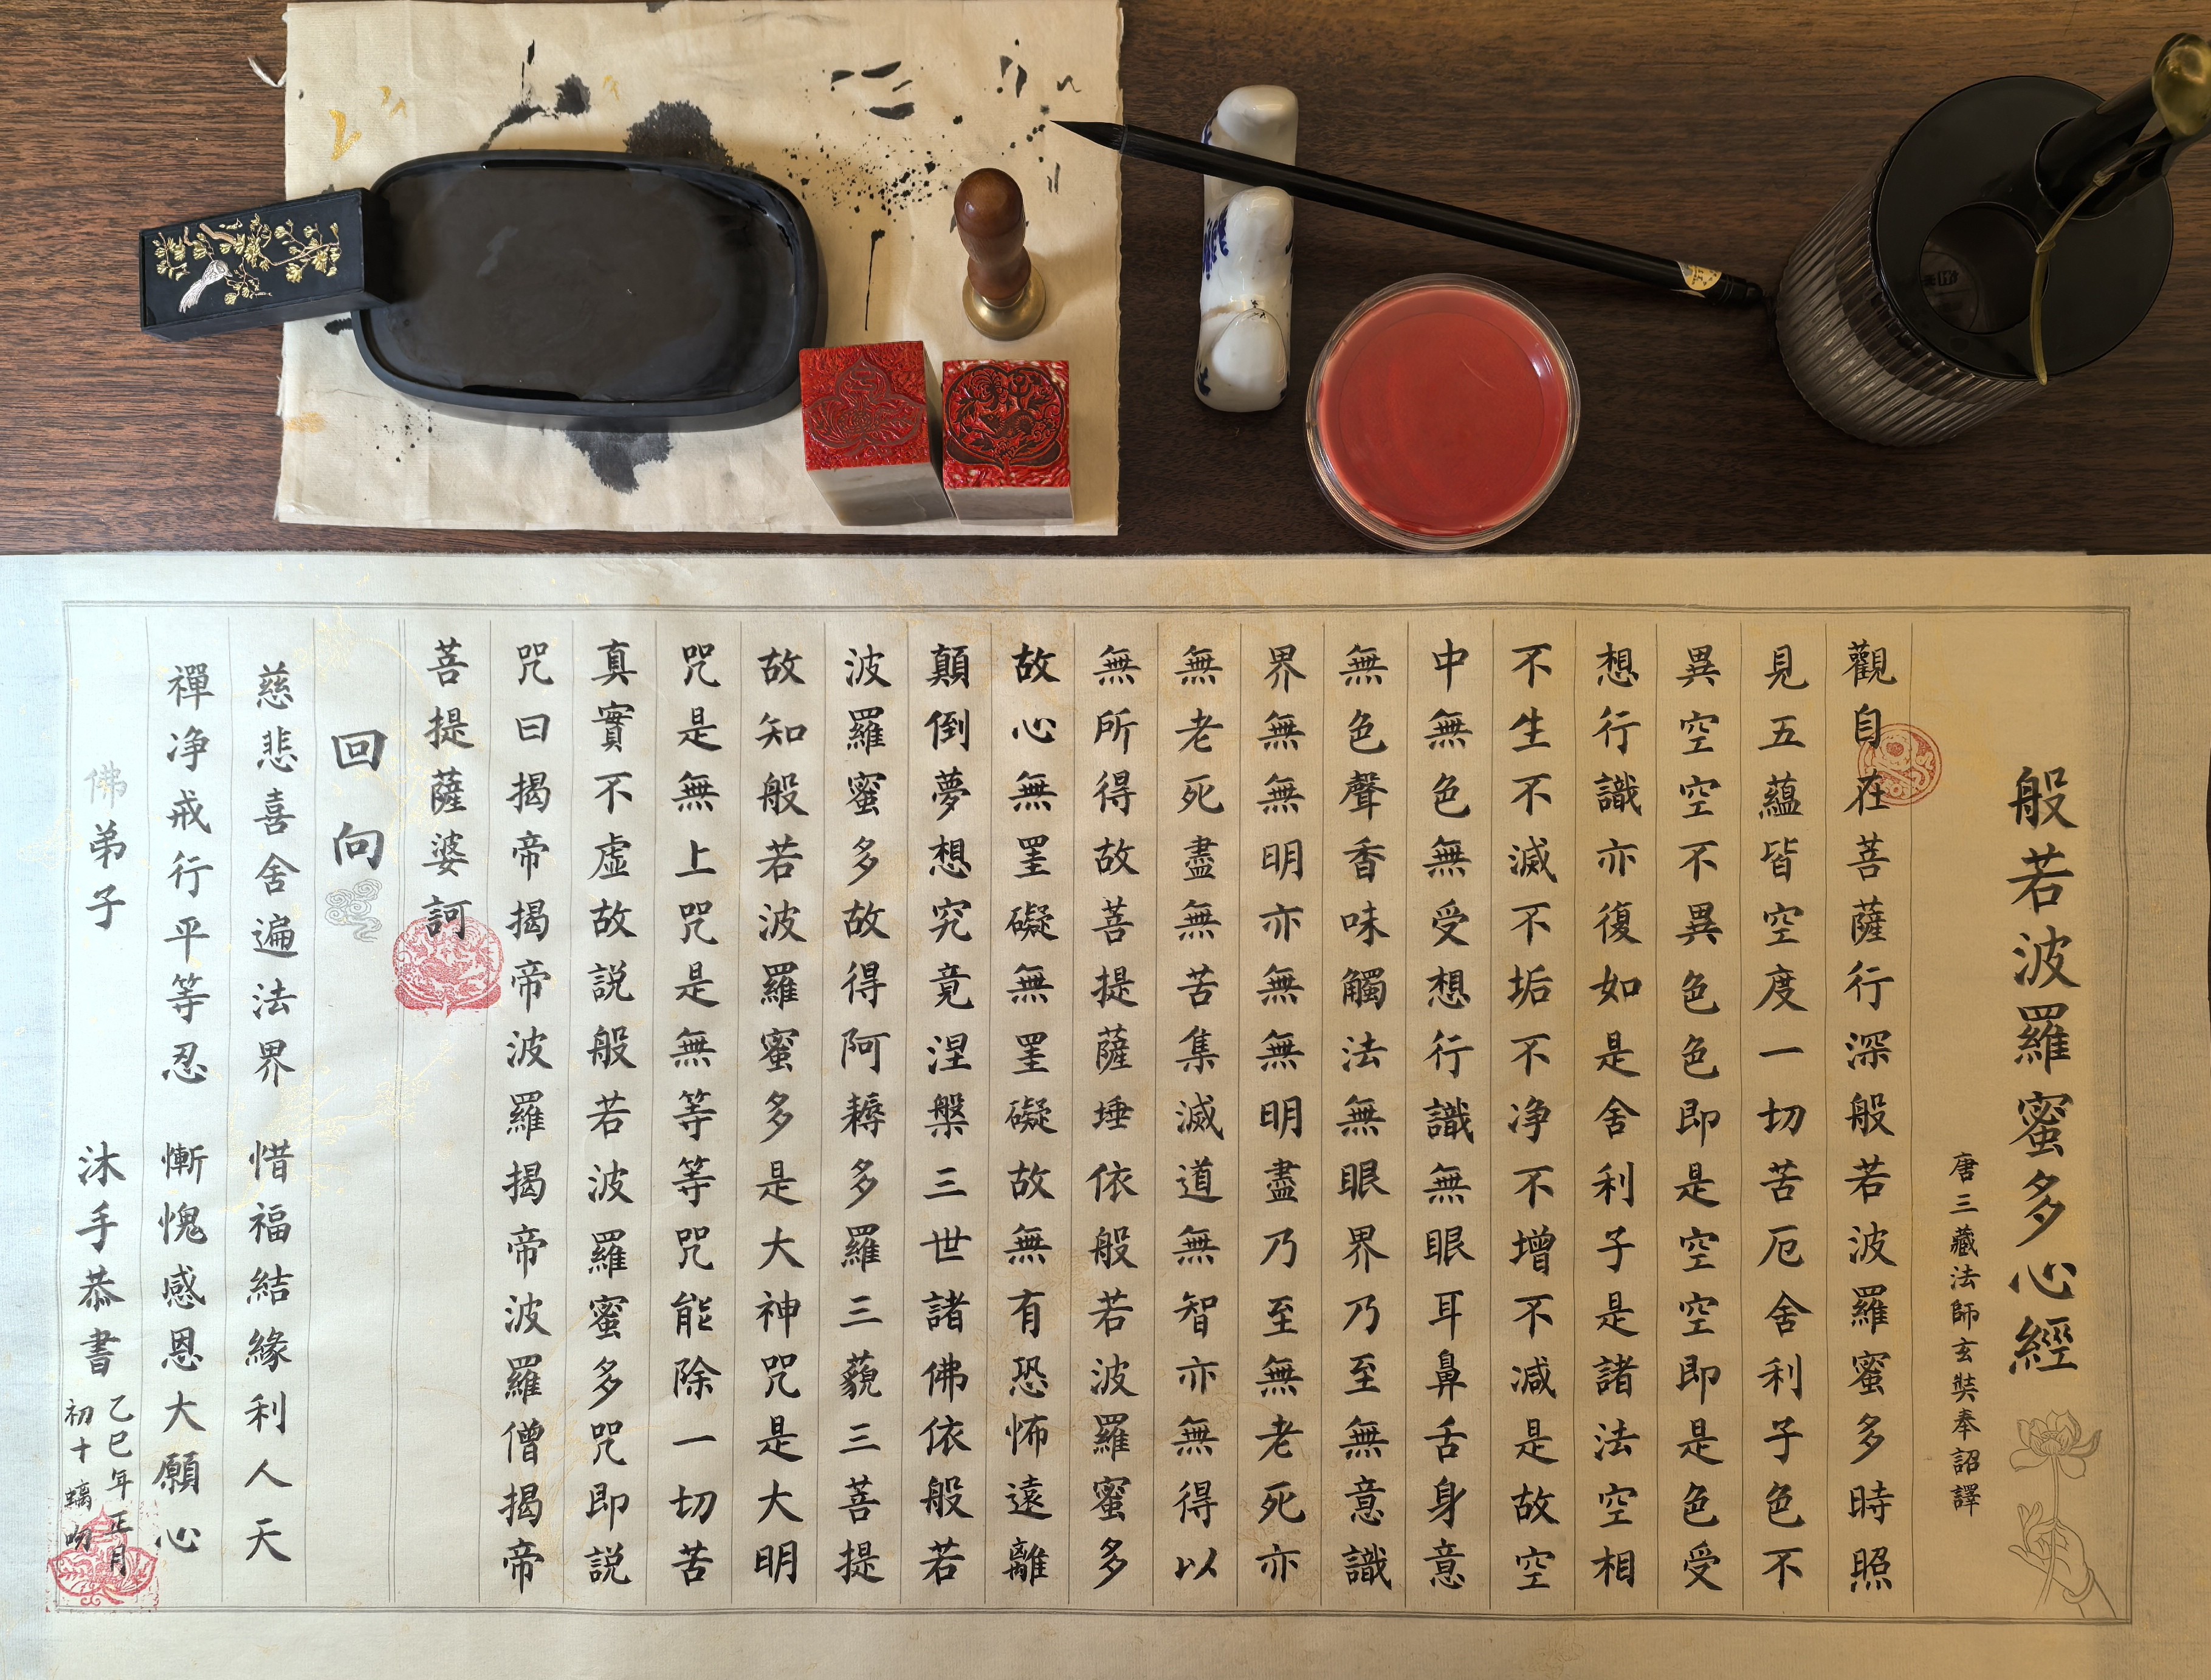 般若波羅蜜多心經
唐三藏法師玄奘奉詔譯
觀自在菩薩行深般若波羅蜜多時照
見五蘊皆空度一切苦厄舍利子色不
異空空不異色色即是空空即是色受
想行識亦復如是舍利子是諸法空相
不生不滅不垢不净不增不減是故空
中無色無受想行識無眼耳鼻舌身意
無色聲香味觸法無眼界乃至無意識
界無無明亦無無明盡乃至無老死亦
無老死盡無苦集滅道無智亦無得以
無所得故菩提薩埵依般若波羅蜜多
故心無罣礙無罣礙故無有恐怖遠離
顛倒夢想究竟涅槃三世諸佛依般若
波羅蜜多故得阿耨多羅三藐三菩提
故知般若波羅蜜多是大神咒是大明
咒是無上咒是無等等咒能除一切苦
真實不虛故説般若波羅蜜多咒即説
咒曰揭帝揭帝波羅揭帝波羅僧揭帝
菩提薩婆訶
回向
慈悲喜舍遍法界 惜福結緣利人天
禪净戒行平等忍 慚愧感恩大願心
佛弟子 沐手恭書
乙巳年正月
初十